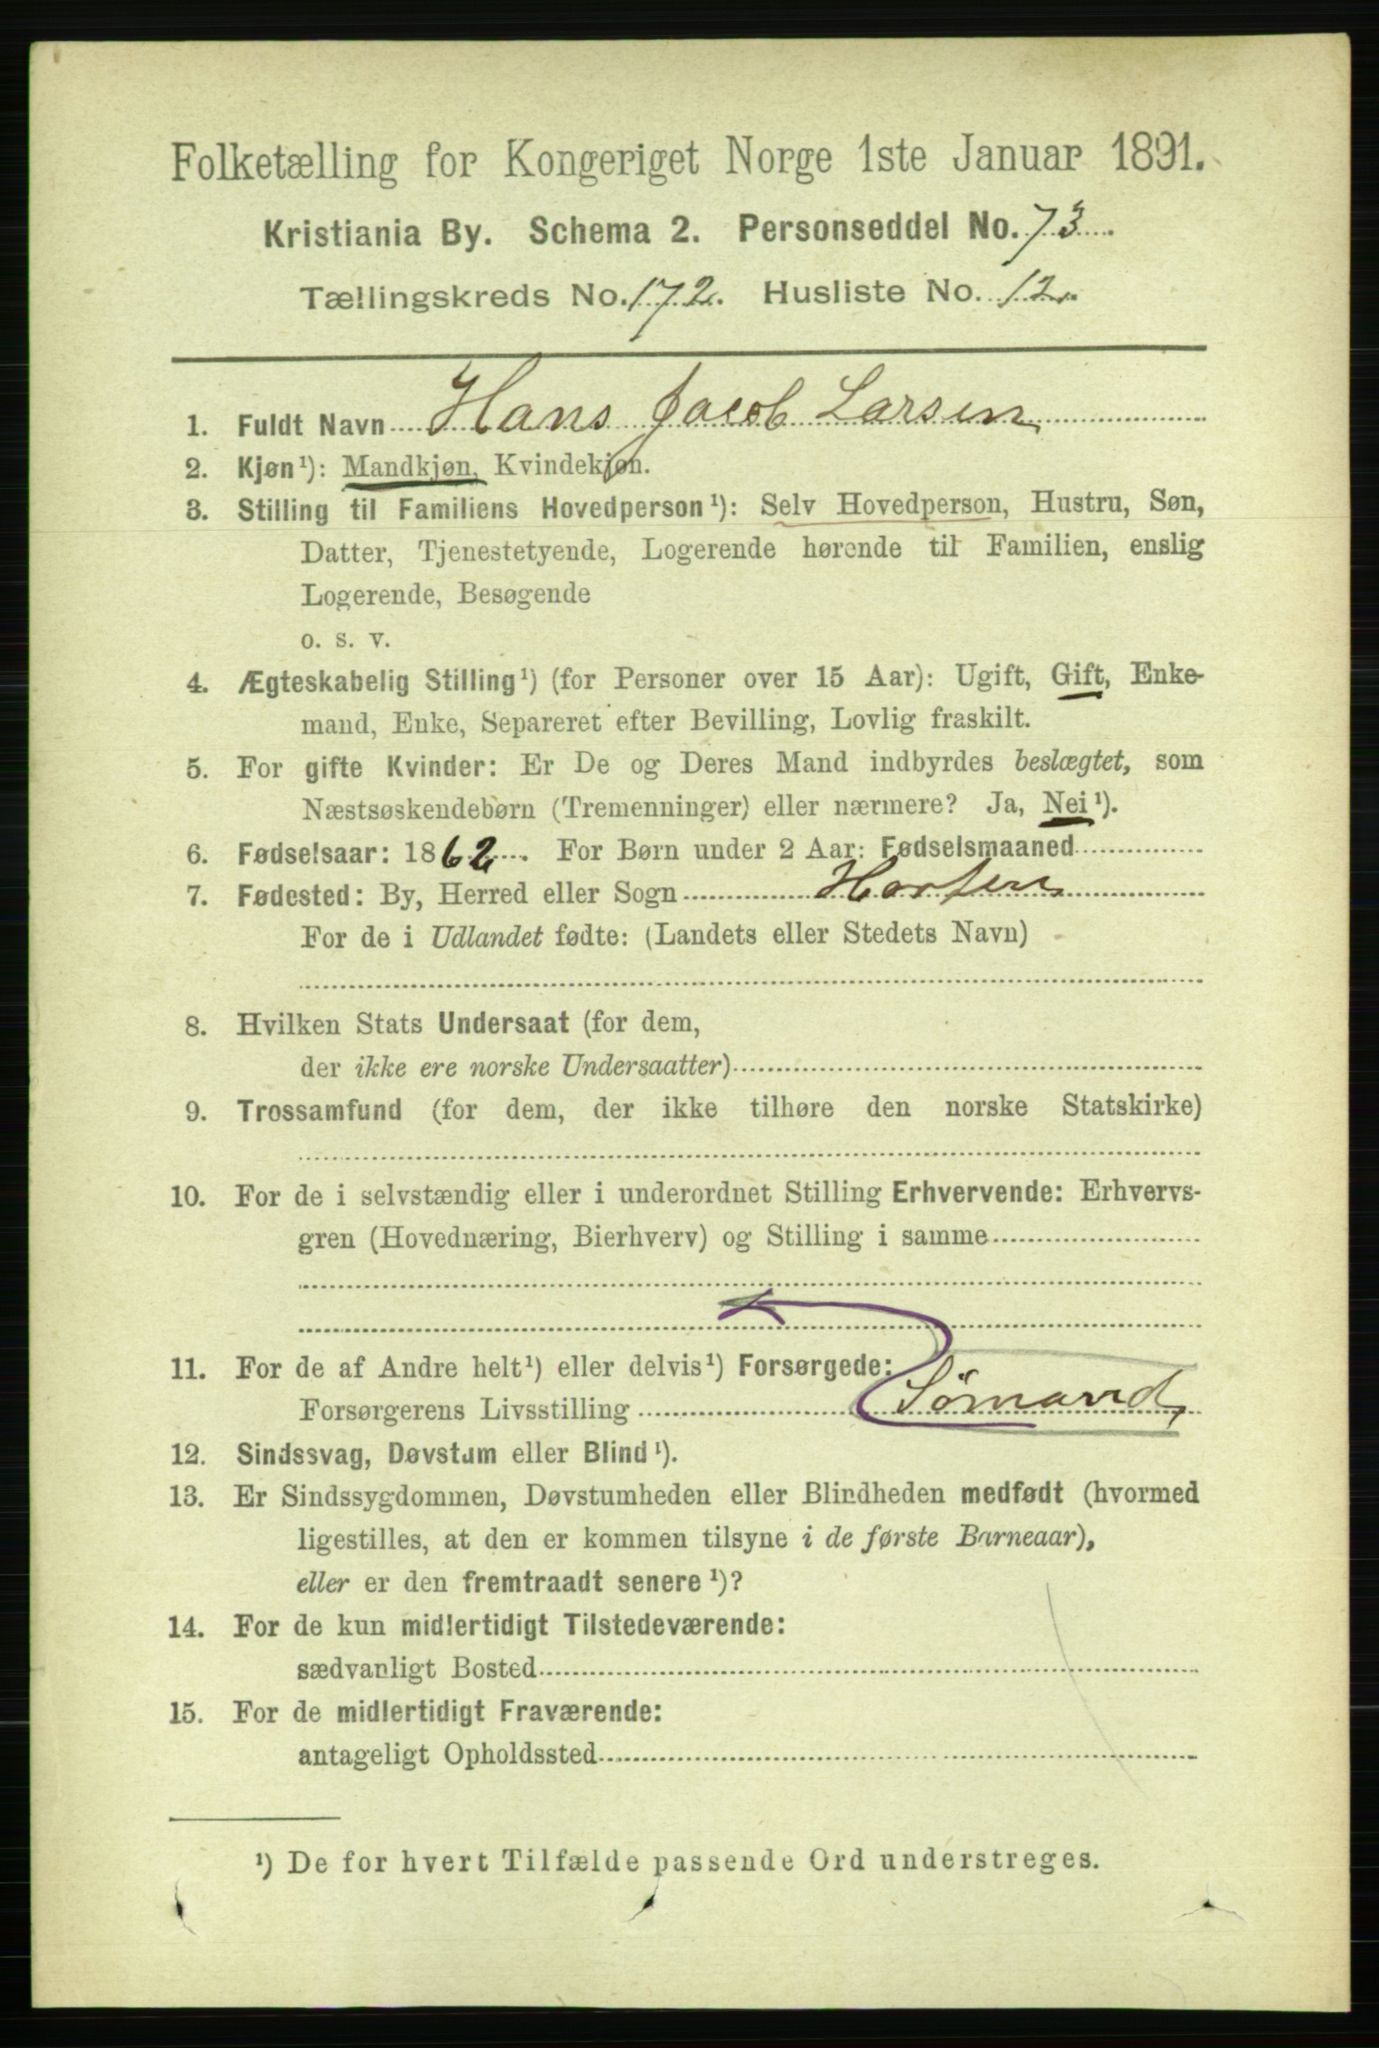 Folketælling for Kongeriget Norge 1ste Januar 1891.
Kristiania By. Schema 2. Personseddel No. 73
Tællingskreds No. 172. Husliste No. 12.
1. Fuldt Navn Hans Jacob Larsen
2. Kjøn¹): Mandkjøn, Kvindekjøn.
3. Stilling til Familiens Hovedperson¹): Selv Hovedperson, Hustru, Søn,
Datter, Tjenestetyende, Logerende hørende til Familien, enslig
Logerende, Besøgende
o. s. v.
4. Ægteskabelig Stilling¹) (for Personer over 15 Aar): Ugift, Gift, Enke-
mand, Enke, Separeret efter Bevilling, Lovlig fraskilt.
5. For gifte Kvinder: Er De og Deres Mand indbyrdes beslægtet, som
Næstsøskendebørn (Tremenninger) eller nærmere? Ja, Nei¹).
6. Fødselsaar: 1862. For Børn under 2 Aar: Fødselsmaaned
7. Fødested: By, Herred eller Sogn Horten
For de i Udlandet fødte: (Landets eller Stedets Navn)
8. Hvilken Stats Undersaat (for dem,
der ikke ere norske Undersaatter)
9. Trossamfund (for dem, der ikke tilhøre den norske Statskirke)
10. For de i selvstændig eller i underordnet Stilling Erhvervende: Erhvervs-
gren (Hovednæring, Bierhverv) og Stilling i samme
11. For de af Andre helt¹) eller delvis¹) Forsørgede:
Forsørgerens Livsstilling Sømand,
12. Sindssvag, Døvstum eller Blind¹).
13. Er Sindssygdommen, Døvstumheden eller Blindheden medfødt (hvormed
ligestilles, at den er kommen tilsyne i de første Barneaar),
eller er den fremtraadt senere¹)?
14. For de kun midlertidigt Tilstedeværende:
sædvanligt Bosted
15. For de midlertidigt Fraværende:
antageligt Opholdssted
¹) De for hvert Tilfælde passende Ord understreges.